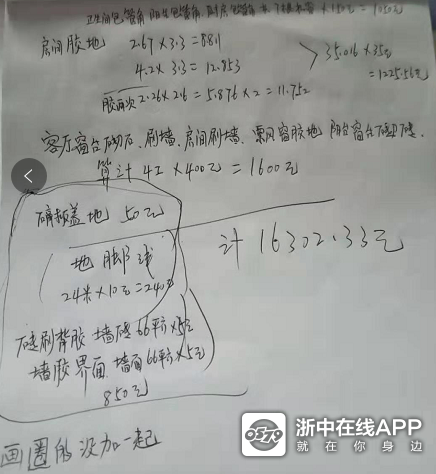 卫生间包管角 阳台包管角 厨房包管角 共7根 × 150元 = 1050元
房间胶地 2.67 × 3.3 = 8.811
4.2 × 3.3 = 12.853
35.016 × 35元
= 1225.56元
胶两次 2.26 × 2.6 = 5.876 × 2 = 11.752
客厅窗台砌石、刷墙、房间刷墙、飘窗胶地 阳台窗台
算计 4工 × 400元 = 1600元
盖地 50元
计 16302.33元
地脚线
24米 × 10元 = 240元
砖刷背胶 墙砖 66平方 × 5元
墙胶界面 墙面 66平方 × 5元
850元
画圈的没加一起
0579
浙中在线APP
就在你身边